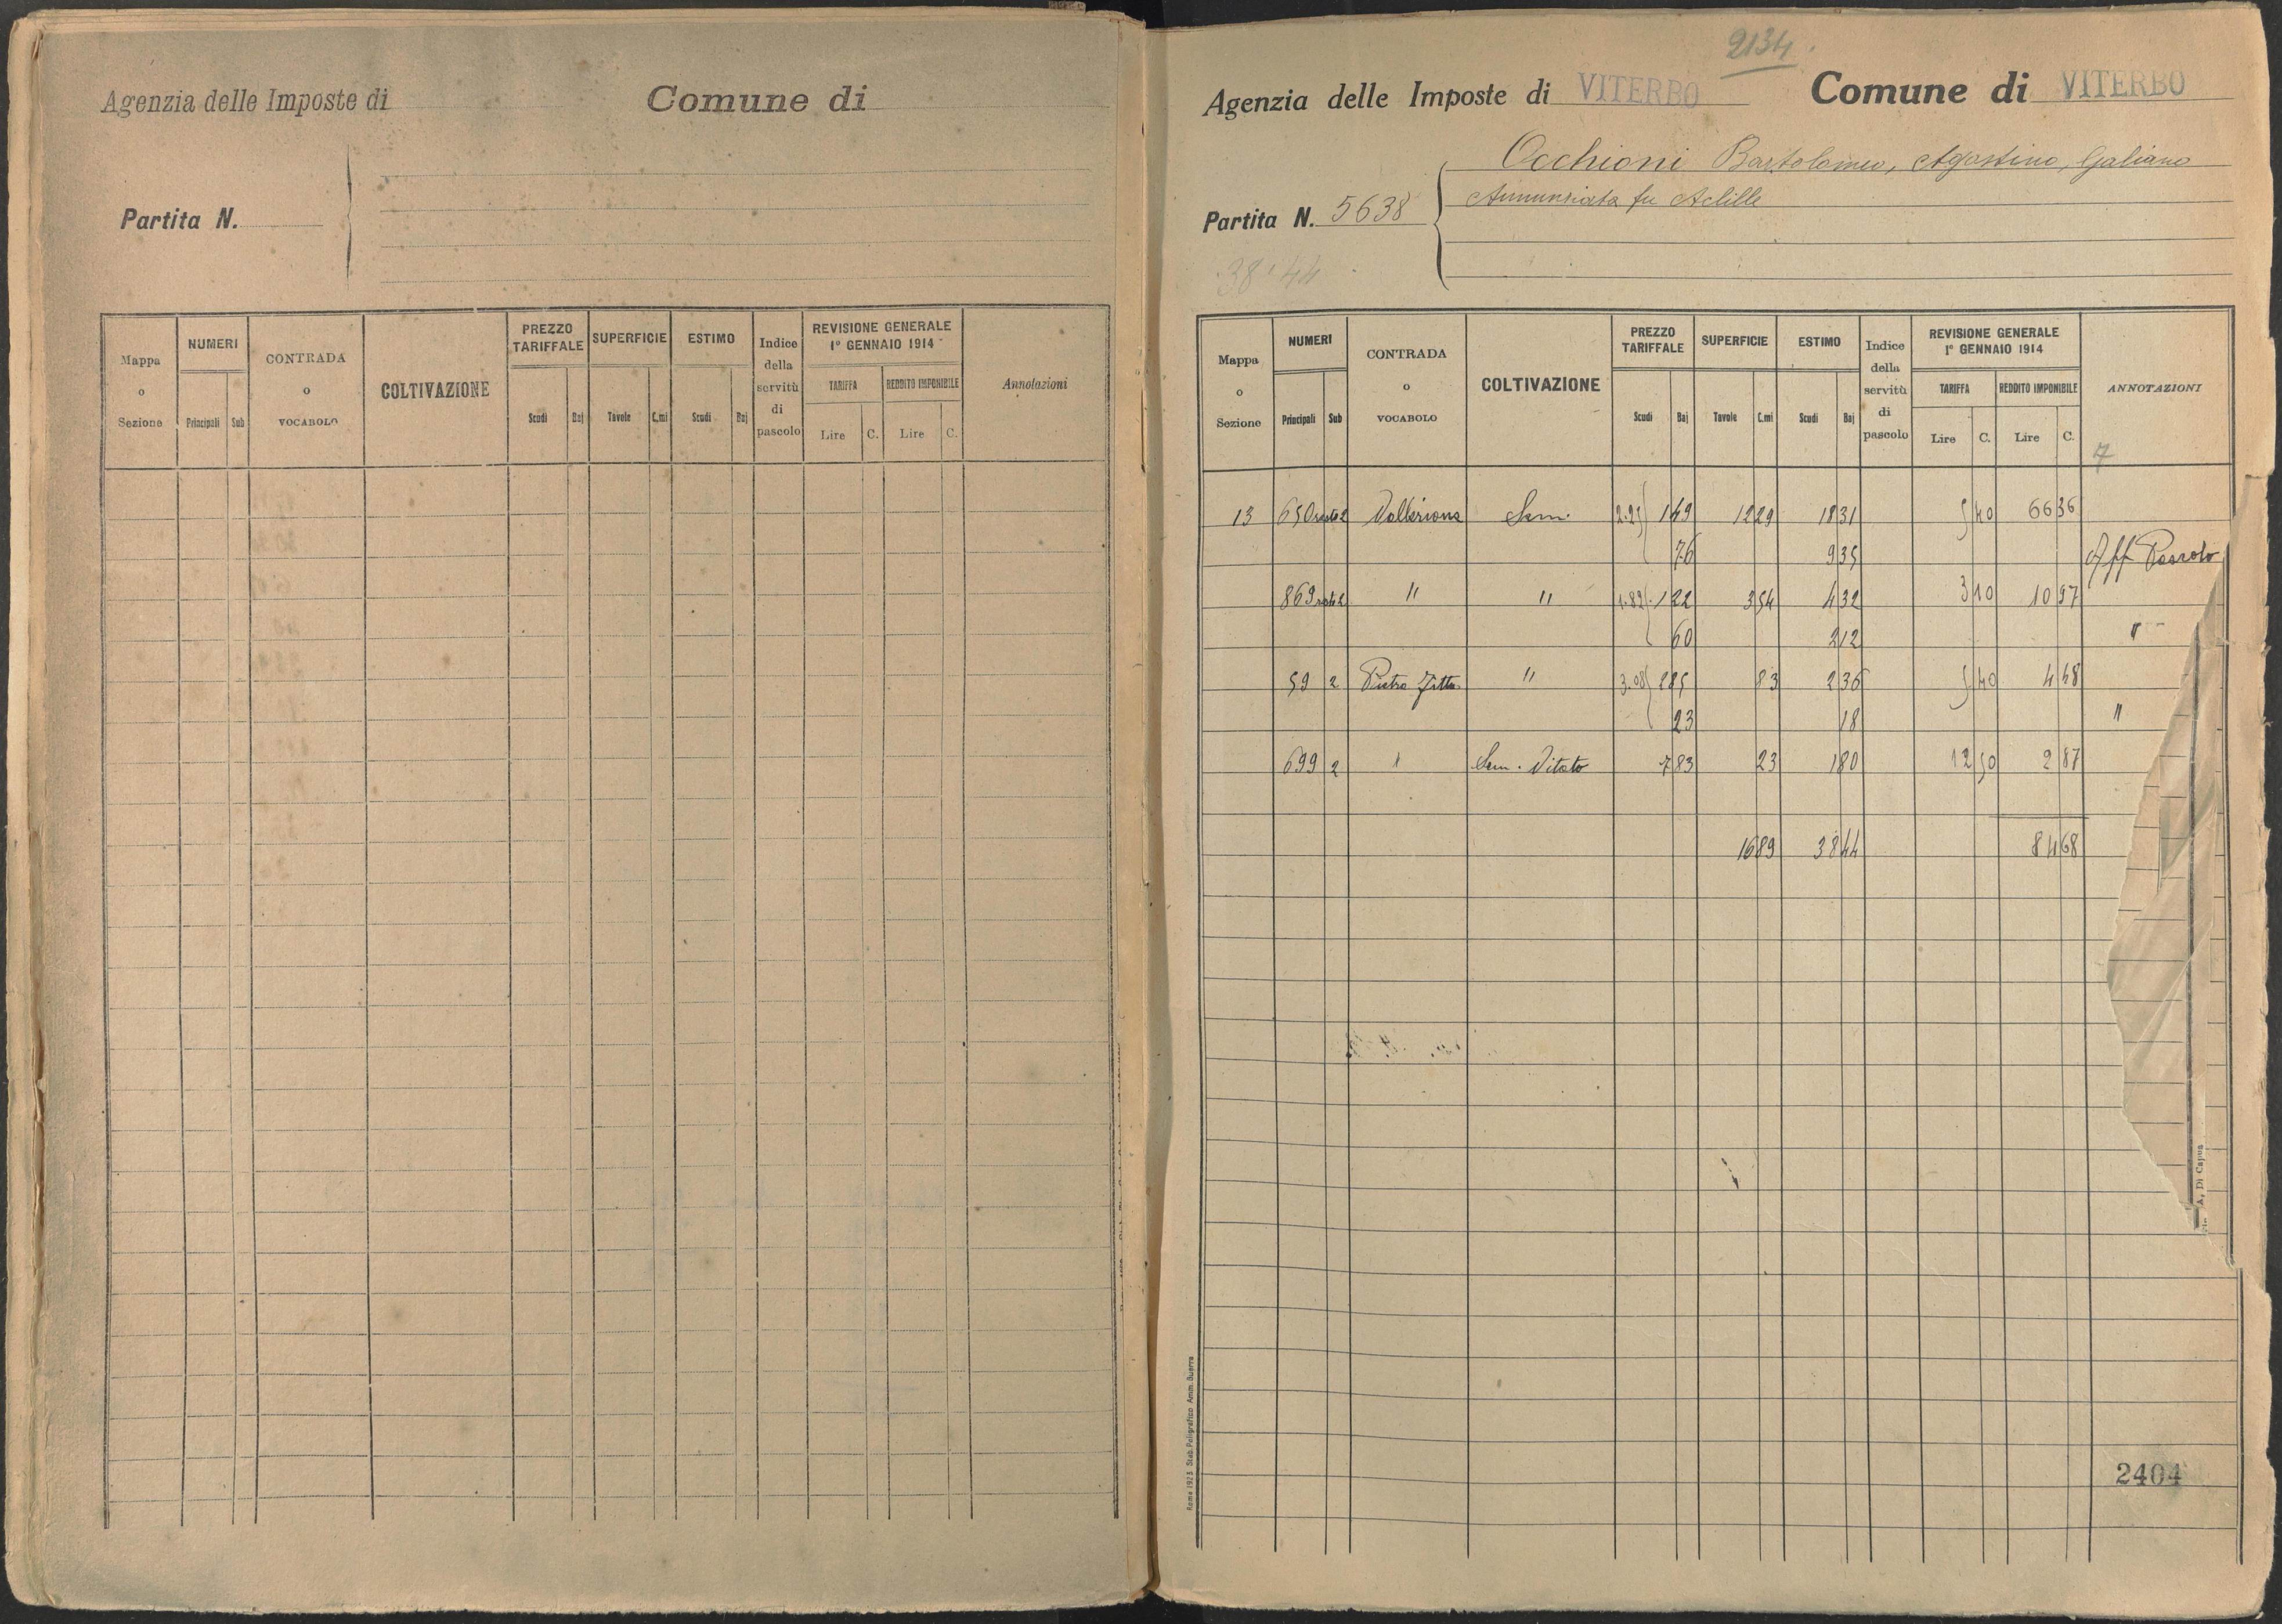 Agenzia delle Imposte di
Comune di
Partita N.
Mappa o Sezione
NUMERI
Principali Sub
CONTRADA o VOCABOLO
COLTIVAZIONE
PREZZO TARIFFALE
Scudi Baj
SUPERFICIE
Tavole C.mi
ESTIMO
Scudi Baj
Indice della servitù di pascolo
REVISIONE GENERALE
1° GENNAIO 1914
TARIFFA
Lire C.
REDDITO IMPONIBILE
Lire C.
Annotazioni
2134
Agenzia delle Imposte di VITERBO Comune di VITERBO
Occhioni Bartolomeo, Agostino, Galiano
Annunziata fu Achille
Partita N. 5638
38'44
Mappa o Sezione
NUMERI
Principali Sub
CONTRADA o VOCABOLO
COLTIVAZIONE
PREZZO TARIFFALE
Scudi Baj
SUPERFICIE
Tavole C.mi
ESTIMO
Scudi Baj
Indice della servitù di pascolo
REVISIONE GENERALE
1° GENNAIO 1914
TARIFFA
Lire C.
REDDITO IMPONIBILE
Lire C.
ANNOTAZIONI
7
13 650 2 Sem. 2.25 1 49 12 29 18 31 5 40 66 36
76 9 35 Aff Pascolo
869 2 " " 1.82 1 22 3 54 4 32 3 10 10 97
60 2 12 "
59 2 Pietro " 3.08 2 85 83 2 36 5 40 4 48
23 18 "
699 2 " Sem. Vitato 7 83 23 1 80 12 50 2 87
16 89 38 44 84 68
A, Di Capua
Roma 1923 Stab. Poligrafico Amm. Guerra
2404